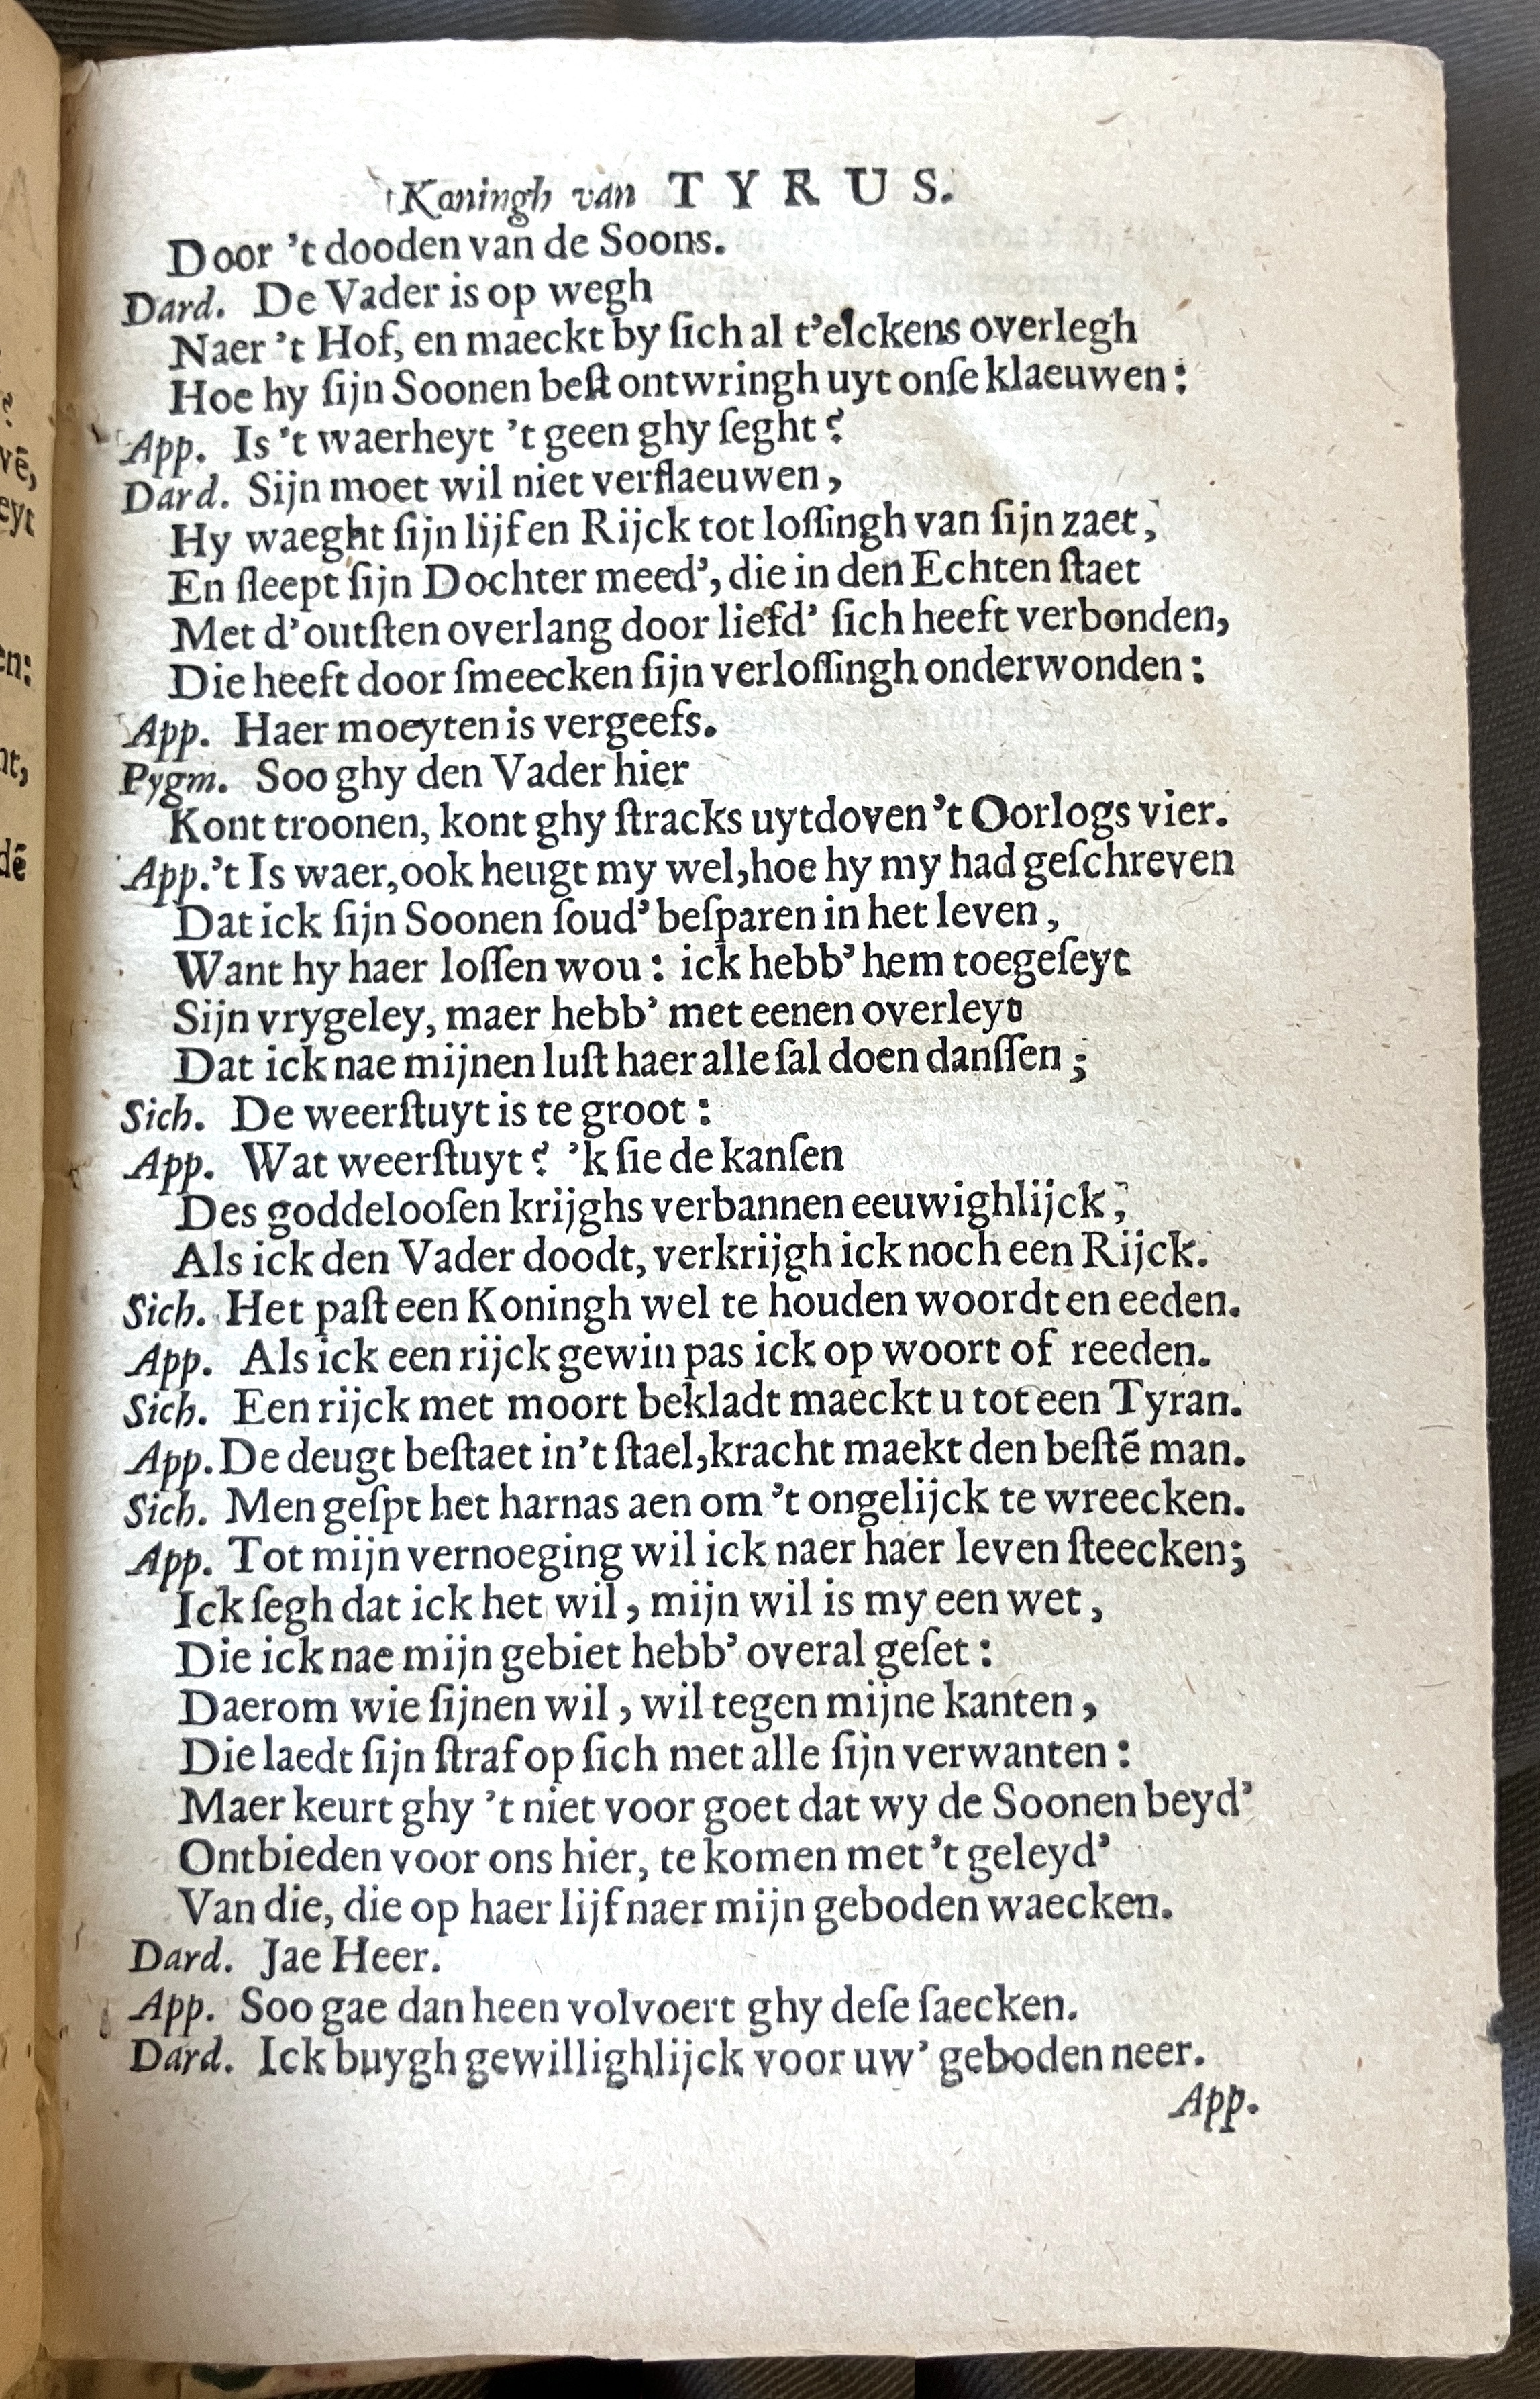 Koningh van TYRUS.
Door 't dooden van de Soons.
Dard. De Vader is op wegh
Naer 't Hof, en maeckt by ſich al t'elckens overlegh
Hoe hy ſijn Soonen beſt ontwringh uyt onſe klaeuwen:
App. Is 't waerheyt 't geen ghy ſeght?
Dard. Sijn moet wil niet verflaeuwen,
Hy waeght ſijn lijf en Rijck tot loſſingh van ſijn zaet,
En ſleept ſijn Dochter meed', die in den Echten ſtaet
Met d'outſten overlang door liefd' ſich heeft verbonden,
Die heeft door ſmeecken ſijn verloſſingh onderwonden:
App. Haer moeyten is vergeefs.
Pygm. Soo ghy den Vader hier
Kont troonen, kont ghy ſtracks uytdoven 't Oorlogs vier.
App. 't Is waer, ook heugt my wel, hoe hy my had geſchreven
Dat ick ſijn Soonen ſoud' beſparen in het leven,
Want hy haer loſſen wou: ick hebb' hem toegeſeyt
Sijn vrygeley, maer hebb' met eenen overleyd
Dat ick nae mijnen luſt haer alle ſal doen danſſen;
Sich. De weerſtuyt is te groot:
App. Wat weerſtuyt? 'k ſie de kanſen
Des goddelooſen krijghs verbannen eeuwighlijck;
Als ick den Vader doodt, verkrijgh ick noch een Rijck.
Sich. Het paſt een Koningh wel te houden woordt en eeden.
App. Als ick een rijck gewin pas ick op woort of reeden.
Sich. Een rijck met moort bekladt maeckt u tot een Tyran.
App. De deugt beſtaet in 't ſtael, kracht maekt den beſtē man.
Sich. Men geſpt het harnas aen om 't ongelijck te wreecken.
App. Tot mijn vernoeging wil ick naer haer leven ſteecken;
Ick ſegh dat ick het wil, mijn wil is my een wet,
Die ick nae mijn gebiet hebb' overal geſet:
Daerom wie ſijnen wil, wil tegen mijne kanten,
Die laedt ſijn ſtraf op ſich met alle ſijn verwanten:
Maer keurt ghy 't niet voor goet dat wy de Soonen beyd'
Ontbieden voor ons hier, te komen met 't geleyd'
Van die, die op haer lijf naer mijn geboden waecken.
Dard. Jae Heer.
App. Soo gae dan heen volvoert ghy deſe ſaecken.
Dard. Ick buygh gewillighlijck voor uw' geboden neer.
App.